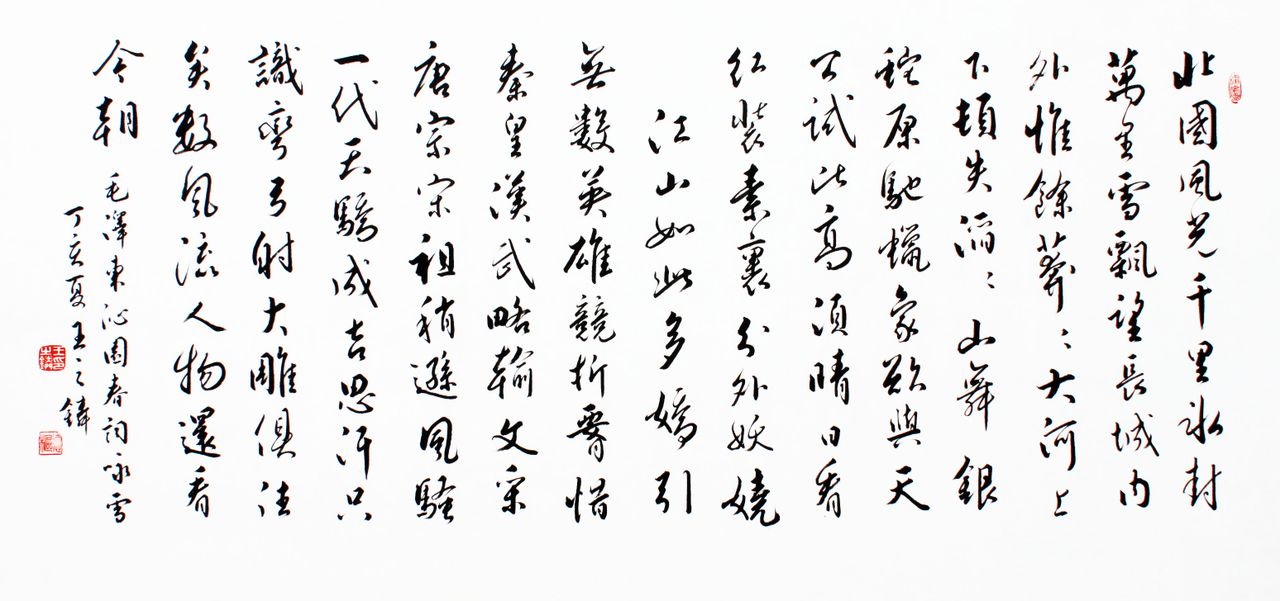 北國風光千里冰封
萬里雪飄望長城內
外惟餘莽〻大河上
下頓失滔〻山舞銀
蛇原馳蠟象欲與天
公試比高須晴日看
紅裝素裹分外妖嬈
江山如此多嬌引
無數英雄競折腰惜
秦皇漢武略輸文采
唐宗宋祖稍遜風騷
一代天驕成吉思汗只
識彎弓射大雕俱往
矣數風流人物還看
今朝
毛澤東沁園春詞咏雪
丁亥夏王之